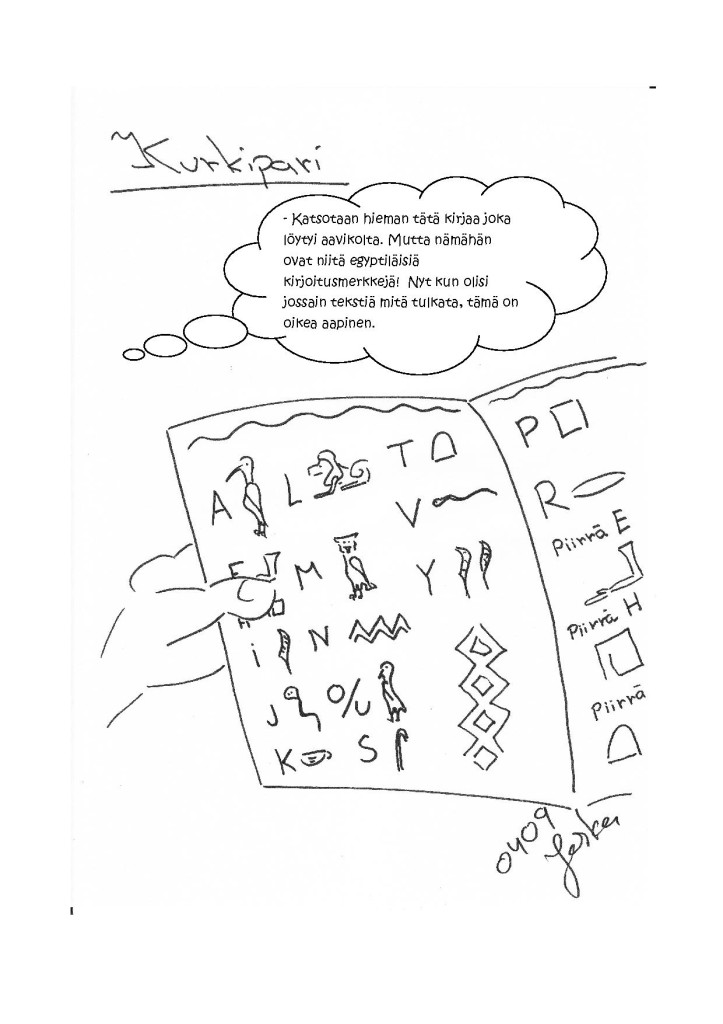 Kurkipari
- Katsotaan hieman tätä kirjaa joka
löytyi aavikolta. Mutta nämähän
ovat niitä egyptiläisiä
kirjoitusmerkkejä! Nyt kun olisi
jossain tekstiä mitä tulkata, tämä on
oikea aapinen.
A L T
V
E M Y
H
i N
J O/U
K S
P
R
Piirrä E
Piirrä H
Piirrä
0409